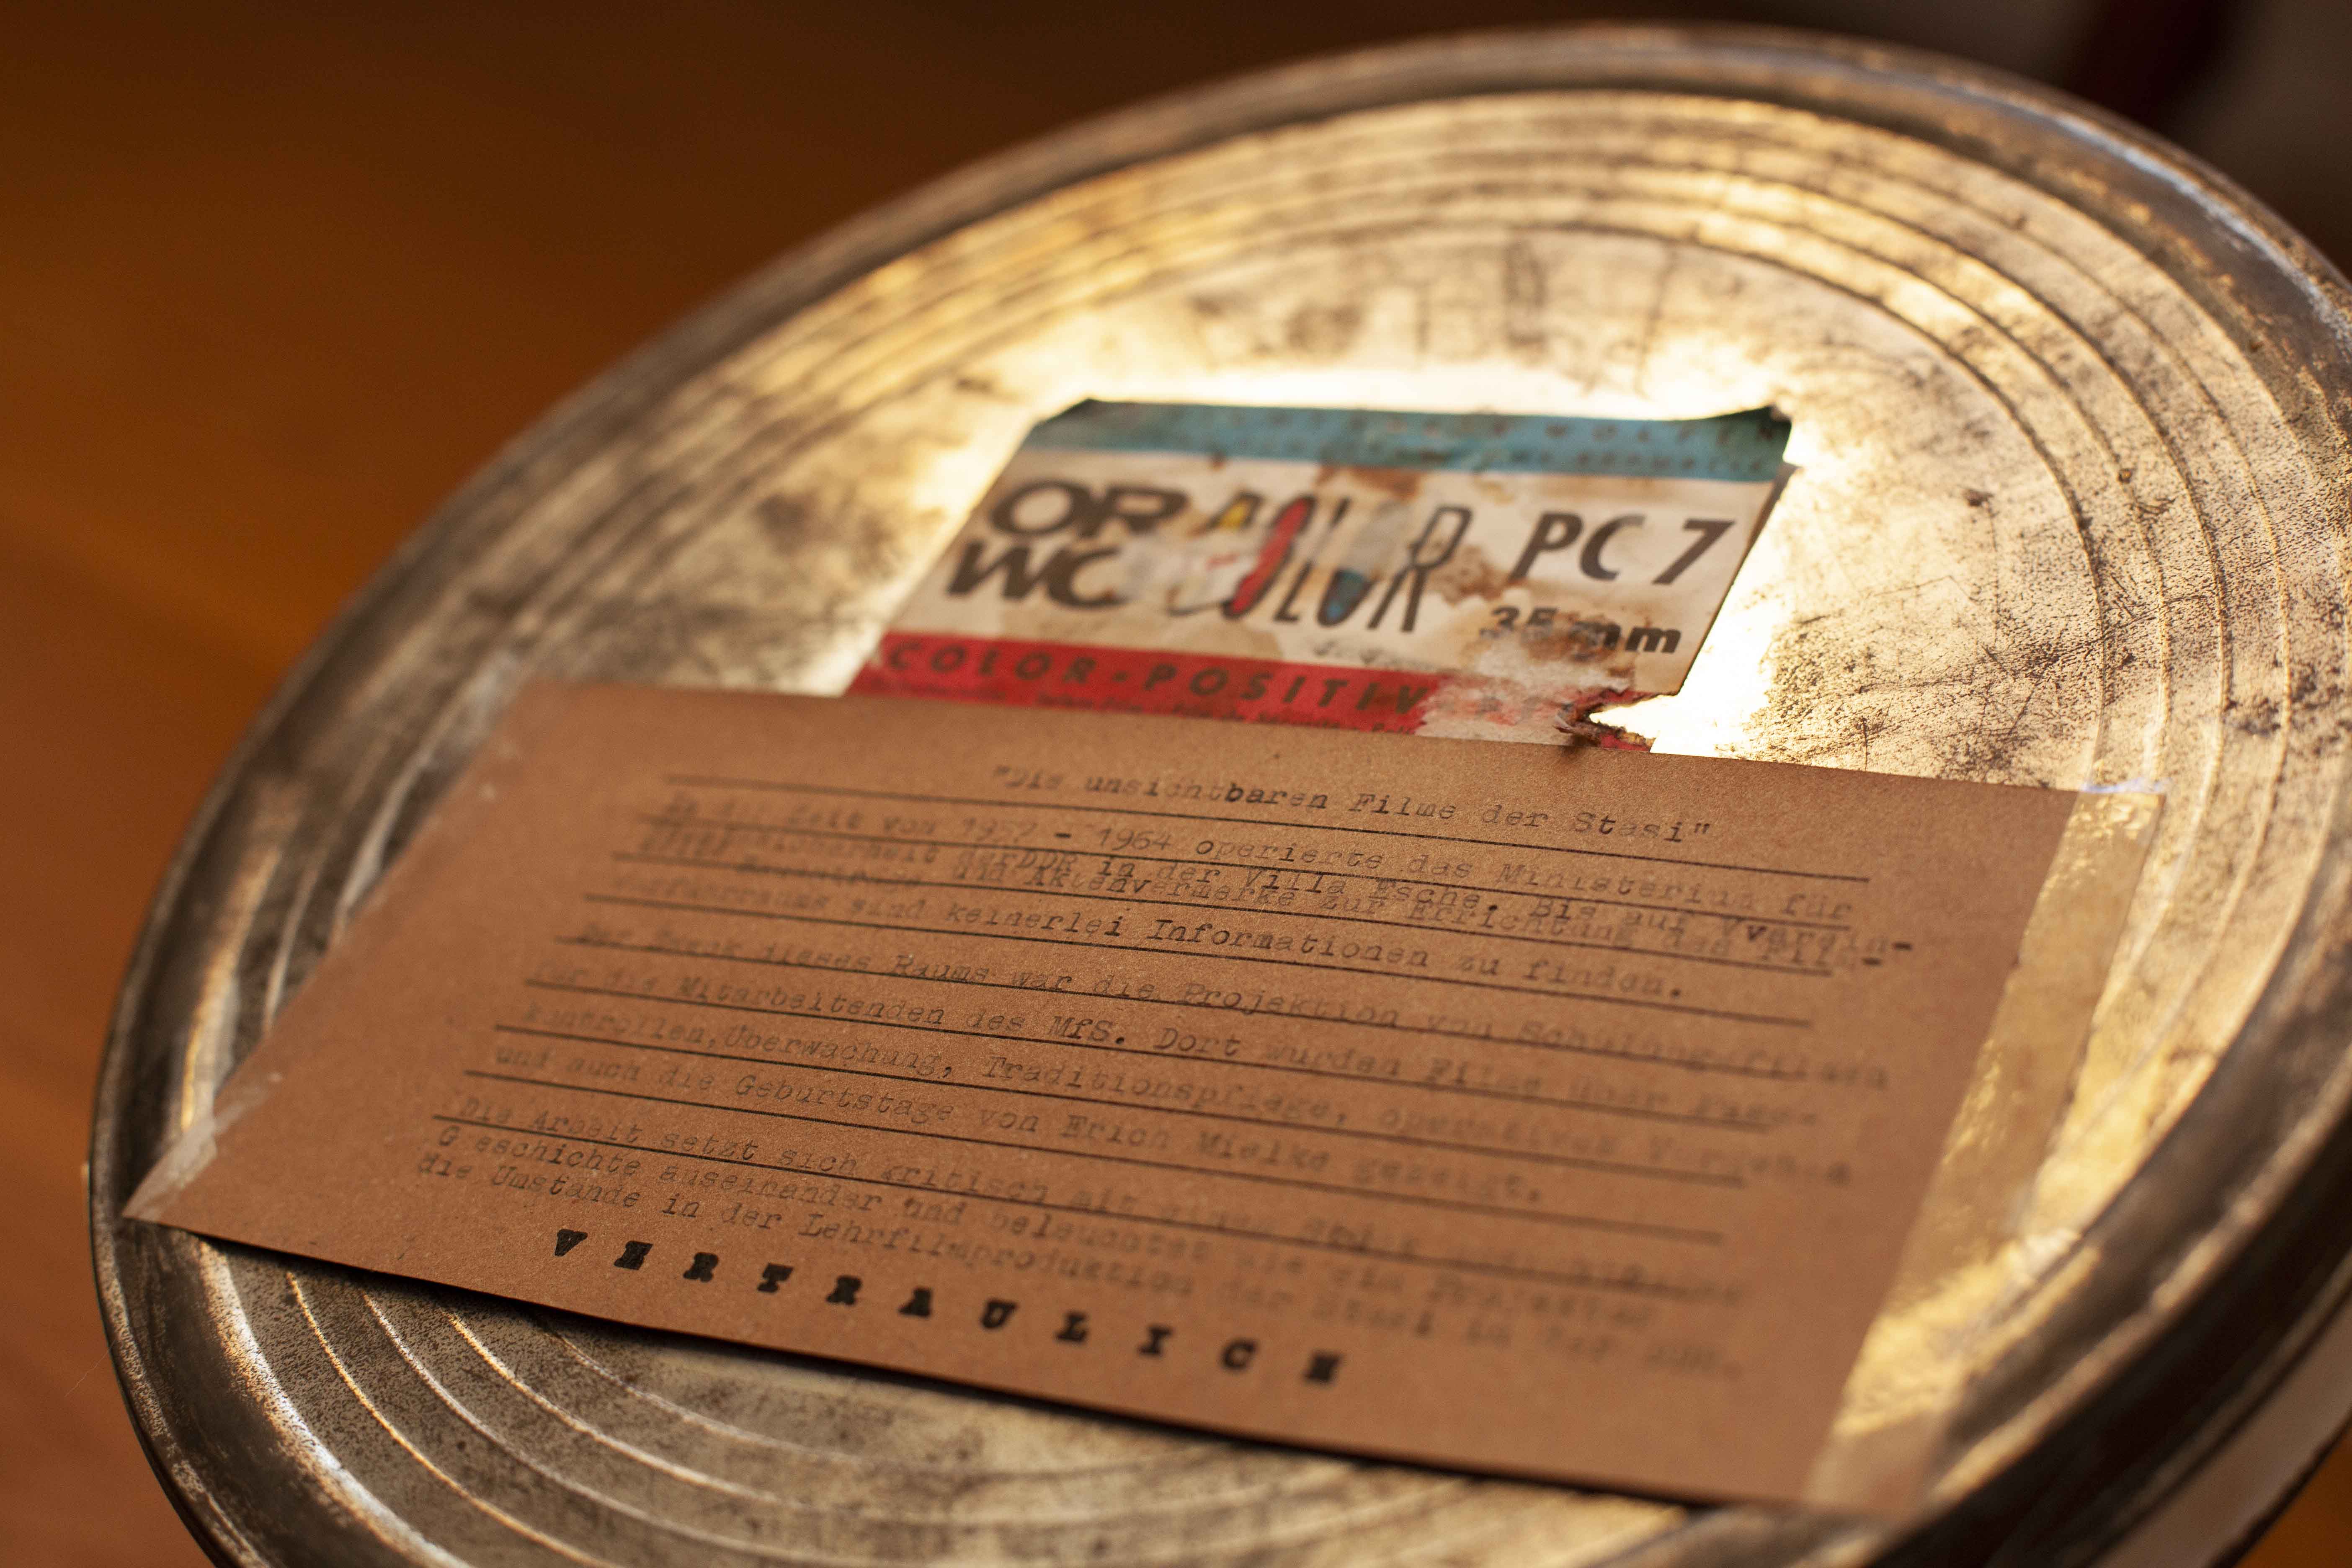 ORWO COLOR PC 7
35 mm
COLOR-POSITIV
"Die unsichtbaren Filme der Stasi"
In der Zeit von 1952 - 1964 operierte das Ministerium für
derDDR in der Villa Esche. Bis auf
und Aktenvermerke zur Errichtung des
sind keinerlei Informationen zu finden.
Der Zweck dieses Raums war die Projektion von Schulungsfilmen
für die Mitarbeitenden des MfS. Dort wurden Filme über
kontrollen,Überwachung, Traditionspflege, operatives Vorgehen
und auch die Geburtstage von Erich Mielke gezeigt.
Die Arbeit setzt sich kritisch mit einem Stück
G eschichte auseinander und beleuchtet wie ein
die Umstände in der Lehrfilmproduktion der Stasi in der DDR.
V E R T R A U L I C H